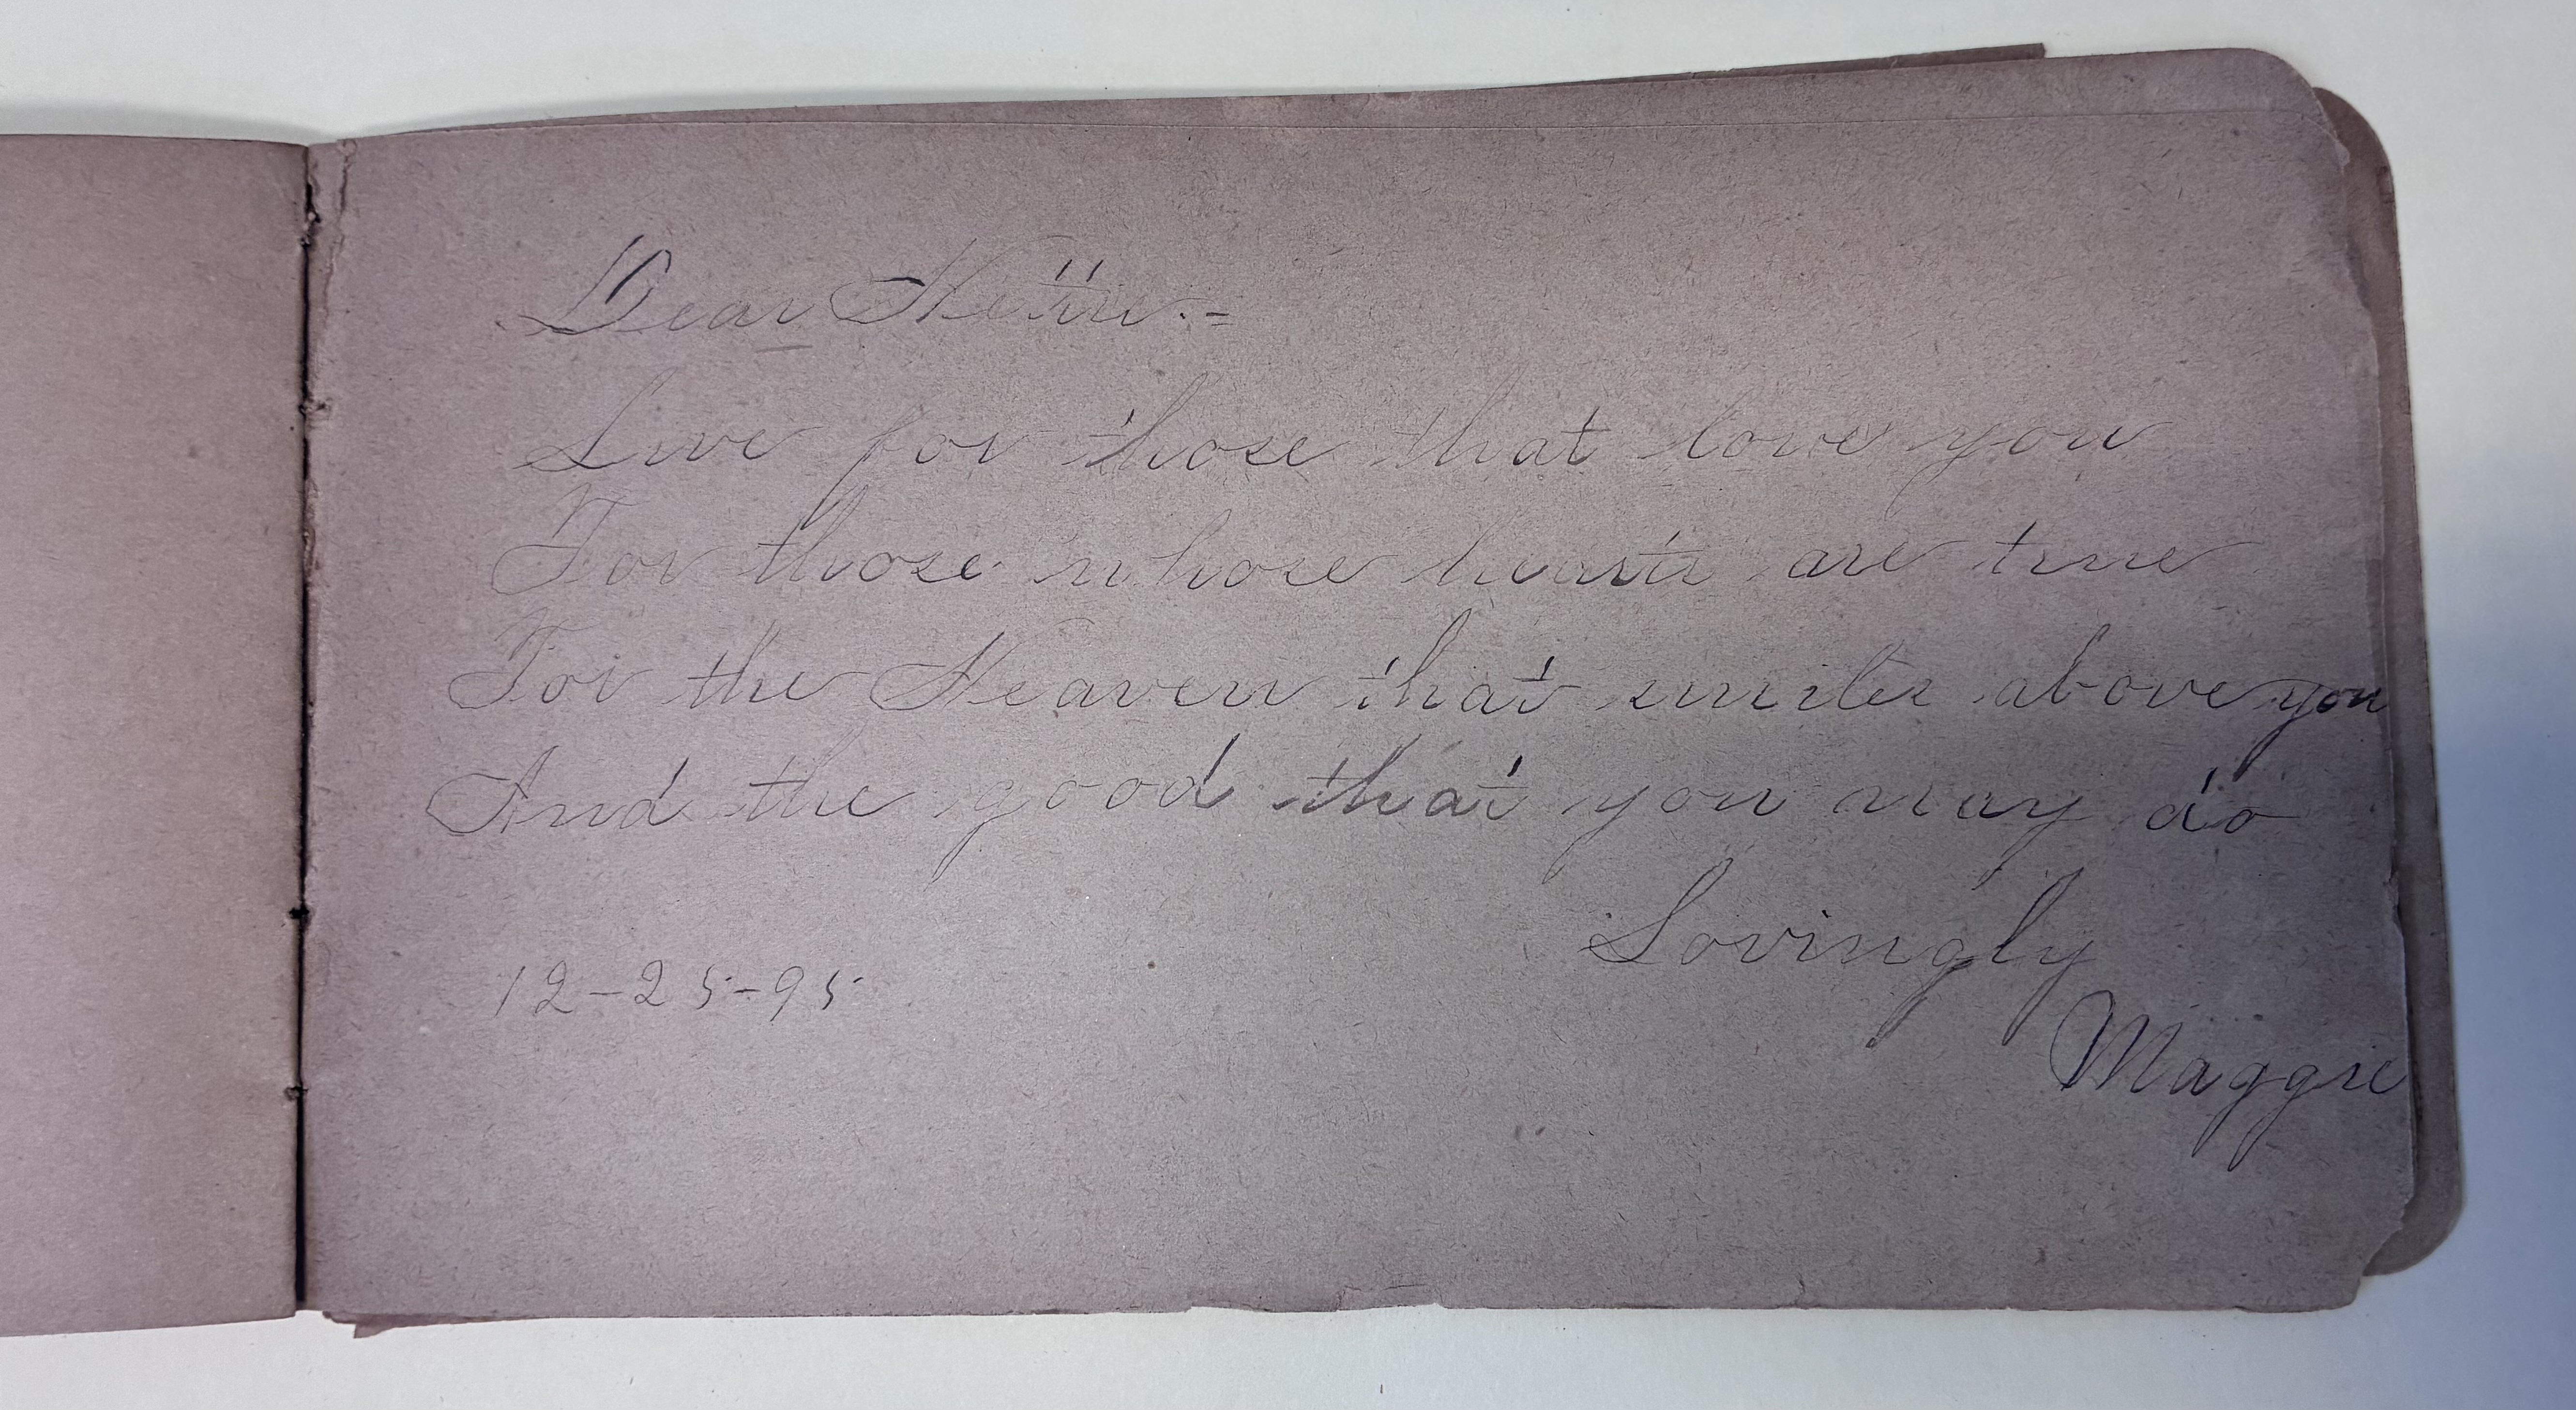 Dear Hettie:=
Live for those that love you
For those whose hearts are true
For the Heaven that smiles above you
And the good that you may do
Lovingly
12-25-95
Maggie